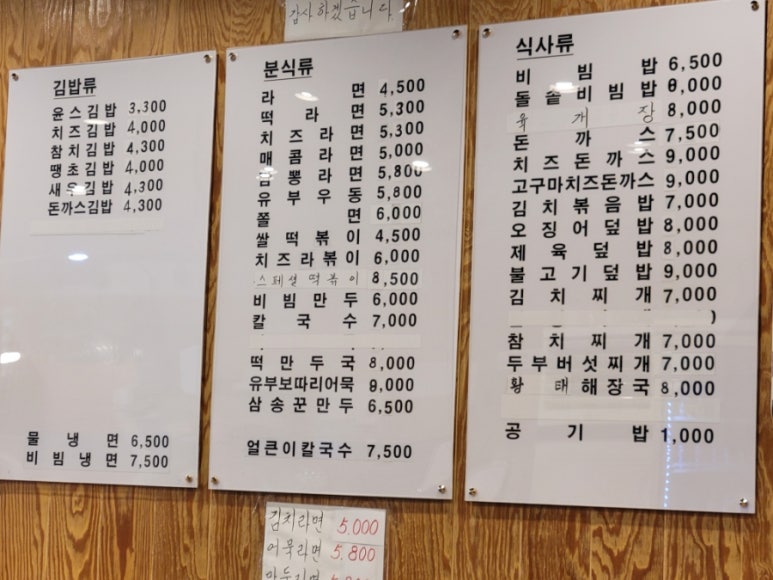 감사하겠습니다
김밥류
윤스김밥 3,300
치즈김밥 4,000
참치김밥 4,300
땡초김밥 4,000
새우김밥 4,300
돈까스김밥 4,300
물냉면 6,500
비빔냉면 7,500
분식류
라면 4,500
떡라면 5,300
치즈라면 5,300
매콤라면 5,000
짬뽕라면 5,800
유부우동 5,800
쫄면 6,000
쌀떡볶이 4,500
치즈라볶이 6,000
스페셜떡볶이 8,500
비빔만두 6,000
칼국수 7,000
떡만두국 8,000
유부보따리어묵 8,000
삼송꾼만두 6,500
얼큰이칼국수 7,500
김치라면 5.000
어묵라면 5.800
식사류
비빔밥 6,500
돌솥비빔밥 8,000
육개장 8,000
돈까스 7,500
치즈돈까스 9,000
고구마치즈돈까스 9,000
김치볶음밥 7,000
오징어덮밥 8,000
제육덮밥 8,000
불고기덮밥 9,000
김치찌개 7,000
참치찌개 7,000
두부버섯찌개 7,000
황태해장국 8,000
공기밥 1,000